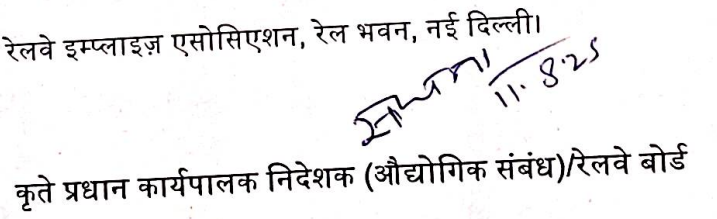 रेलवे इम्प्लाइज़ एसोसिएशन, रेल भवन, नई दिल्ली।
11.8.25
कृते प्रधान कार्यपालक निदेशक (औद्योगिक संबंध)/रेलवे बोर्ड